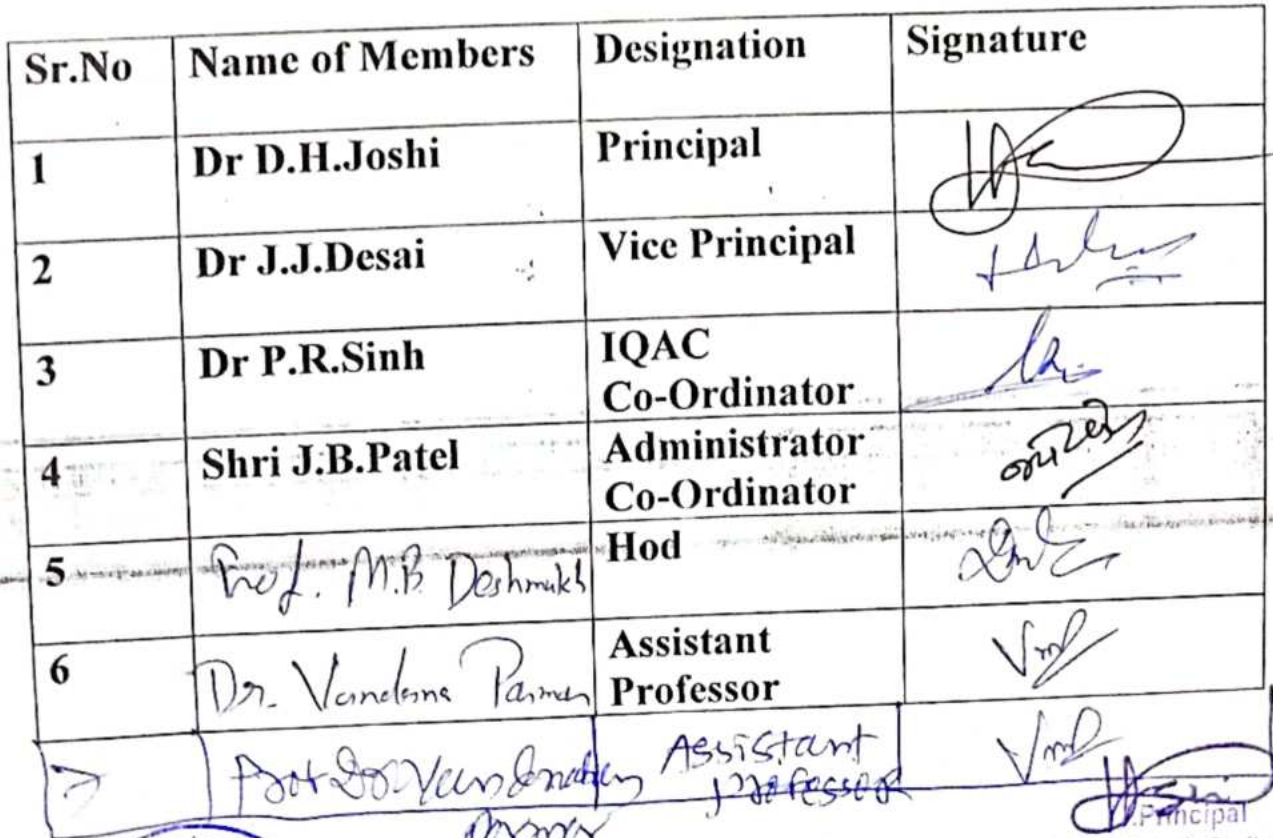 Sr.No Name of Members Designation Signature
1 Dr D.H.Joshi Principal
2 Dr J.J.Desai Vice Principal
3 Dr P.R.Sinh IQAC
Co-Ordinator
4 Shri J.B.Patel Administrator
Co-Ordinator
5 Prof. M.B. Deshmukh Hod
6 Dr. Vandana Parmar Assistant
Professor
7 Assistant
professor
Principal